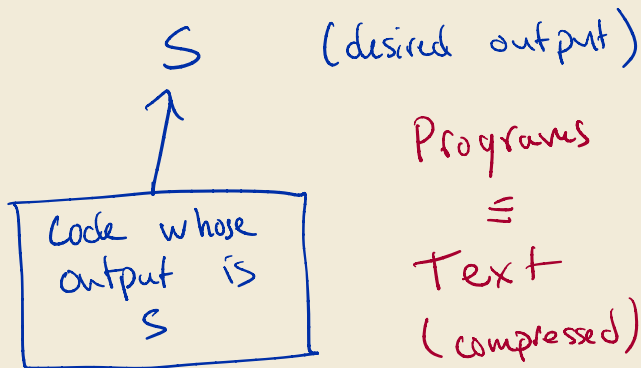 S (desired output)
Code whose
output is
S
Programs
≡
Text
(compressed)